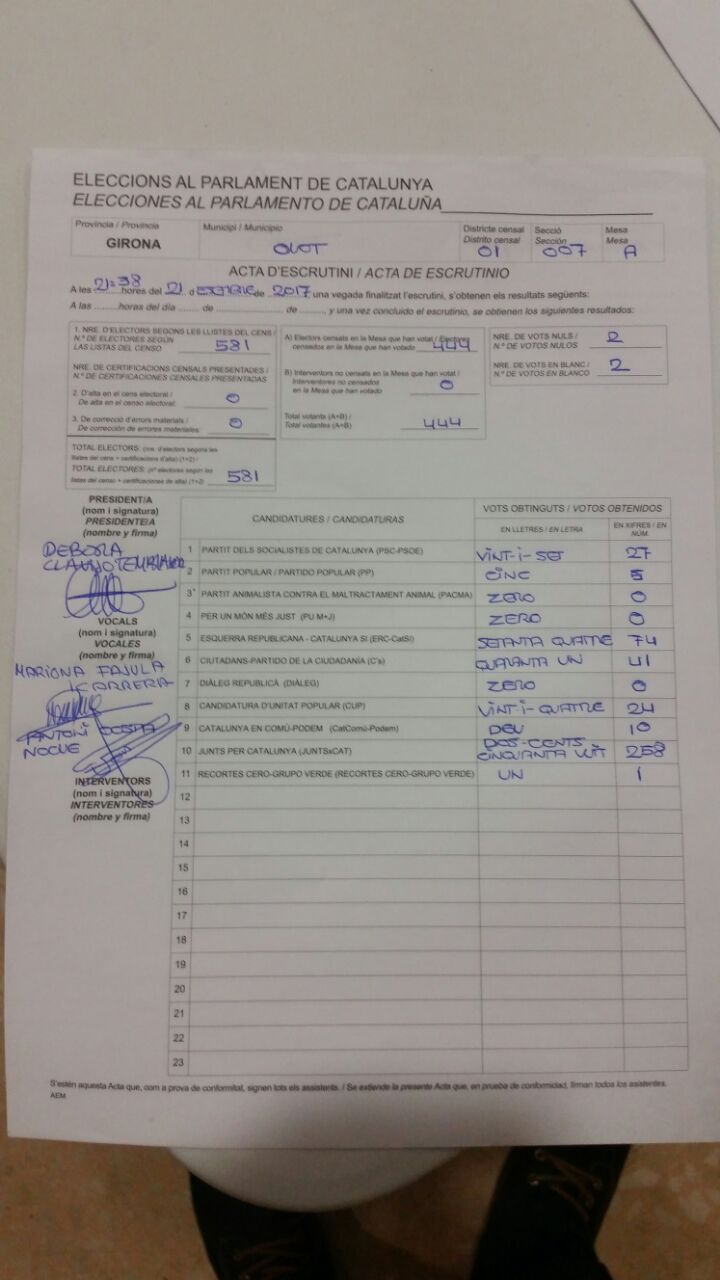 ELECCIONS AL PARLAMENT DE CATALUNYA
ELECCIONES AL PARLAMENTO DE CATALUÑA
Província / Provincia Municipi / Municipio Districte censal Secció Mesa
Distrito censal Sección Mesa
GIRONA OLOT 01 007 A
ACTA D'ESCRUTINI / ACTA DE ESCRUTINIO
A les 21:38 hores del 21 d de 2017 una vegada finalitzat l'escrutini, s'obtenen els resultats següents:
A las .........horas del día ....... de .................... de ........, y una vez concluido el escrutinio, se obtienen los siguientes resultados:
1. NRE. D'ELECTORS SEGONS LES LLISTES DEL CENS /
N.º DE ELECTORES SEGÚN
LAS LISTAS DEL CENSO 581
NRE. DE CERTIFICACIONS CENSALS PRESENTADES /
N.º DE CERTIFICACIONES CENSALES PRESENTADAS
2. D'alta en el cens electoral /
De alta en el censo electoral: 0
3. De correcció d'errors materials /
De corrección de errores materiales: 0
TOTAL ELECTORS: (nre. d'electors segons les
llistes del cens + certificacions d'alta) (1+2) /
TOTAL ELECTORES: (nº electores según las
listas del censo + certificaciones de alta) (1+2) 581
A) Electors censats en la Mesa que han votat / Electores
censados en la Mesa que han votado 444
B) Interventors no censats en la Mesa que han votat /
Interventores no censados
en la Mesa que han votado 0
Total votants (A+B) /
Total votantes (A+B) 444
NRE. DE VOTS NULS /
N.º DE VOTOS NULOS 2
NRE. DE VOTS EN BLANC /
N.º DE VOTOS EN BLANCO 2
PRESIDENT/A
(nom i signatura)
PRESIDENTE/A
(nombre y firma)
DEBORA
VOCALS
(nom i signatura)
VOCALES
(nombre y firma)
MARIONA FAJULA
CARRERA
ANTONI COSTA
NOGUE
INTERVENTORS
(nom i signatura)
INTERVENTORES
(nombre y firma)
CANDIDATURES / CANDIDATURAS VOTS OBTINGUTS / VOTOS OBTENIDOS
EN LLETRES / EN LETRA EN XIFRES / EN NÚM.
1 PARTIT DELS SOCIALISTES DE CATALUNYA (PSC-PSOE) VINT-I-SET 27
2 PARTIT POPULAR / PARTIDO POPULAR (PP) CINC 5
3 PARTIT ANIMALISTA CONTRA EL MALTRACTAMENT ANIMAL (PACMA) ZERO 0
4 PER UN MÓN MÉS JUST (PU M+J) ZERO 0
5 ESQUERRA REPUBLICANA - CATALUNYA SÍ (ERC-CatSí) SETANTA QUATRE 74
6 CIUTADANS-PARTIDO DE LA CIUDADANÍA (C's) QUARANTA UN 41
7 DIÀLEG REPUBLICÀ (DIÀLEG) ZERO 0
8 CANDIDATURA D'UNITAT POPULAR (CUP) VINT-I-QUATRE 24
9 CATALUNYA EN COMÚ-PODEM (CatComú-Podem) DEU 10
10 JUNTS PER CATALUNYA (JUNTSxCAT) DOS-CENTS CINQUANTA VUIT 258
11 RECORTES CERO-GRUPO VERDE (RECORTES CERO-GRUPO VERDE) UN 1
12
13
14
15
16
17
18
19
20
21
22
23
S'estén aquesta Acta que, com a prova de conformitat, signen tots els assistents. / Se extiende la presente Acta que, en prueba de conformidad, firman todos los asistentes.
AEM